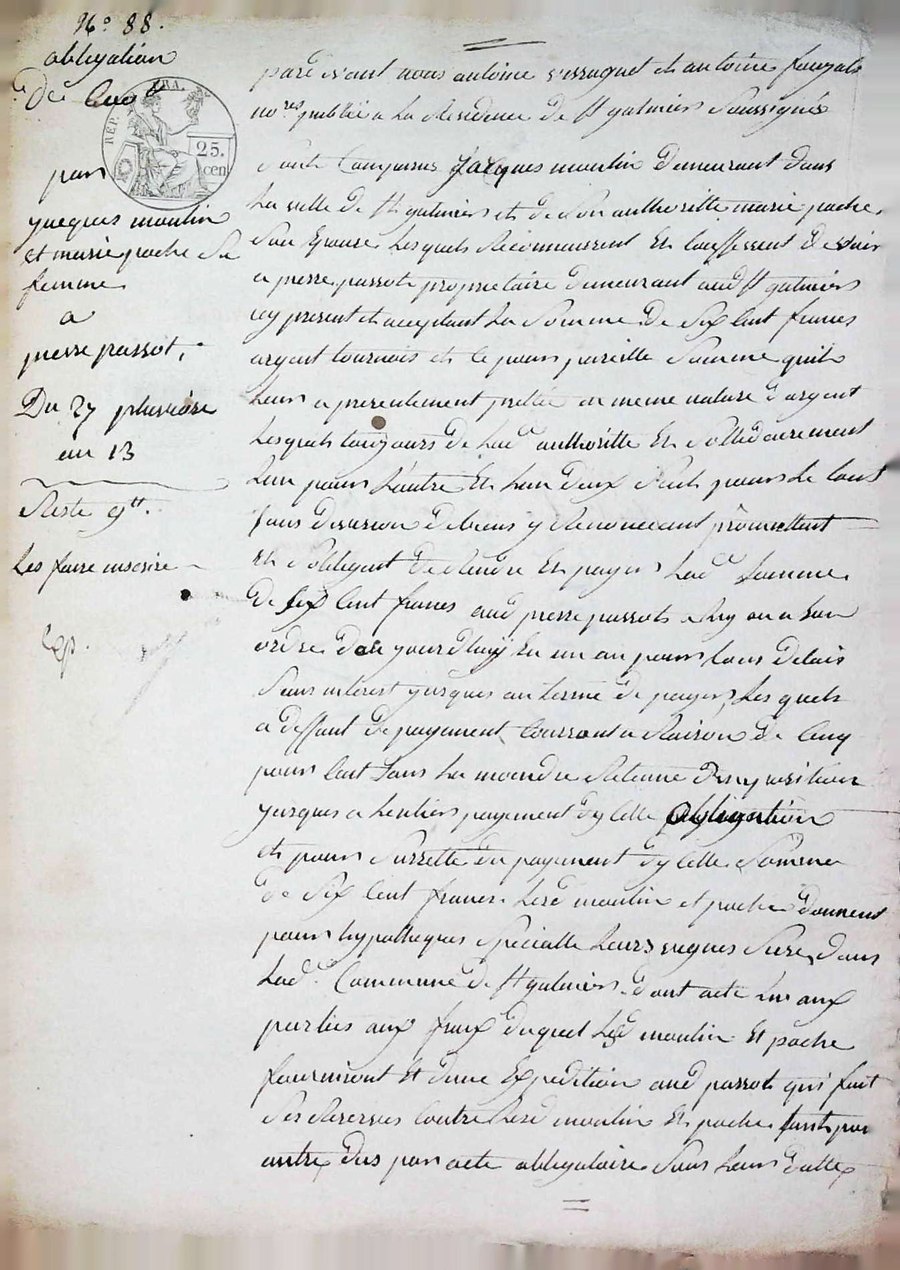 N.° 88.
obligation
De 600 #
REP. FRA.
25.
cen
par
jacques moulin
et marie poche sa
femme
a
pierre passot,
Du 27 pluviose
an 13
Reste 9tt.
Les faire inscrire
Exp.
pardevant nous antoine et antoine
no.res publics a La Residence De St galmier Soussignés
Sont Comparus jacques moulin Demeurant Dans
La ville De St galmier et De Son authoritté marie poche
Son Epouse Lesquels Reconnaissent Et Confessent Devoir
a pierre passot proprietaire Demeurant aud St galmier
icy present et acceptant La Somme De Six Cent francs
argent tournois et Ce pour pareille Somme quil
Leur a presentement prettée en meme nature D'argent
Lesquels toujours De Lad.e authoritté Et Sollidairement
Lun pour Lautre Et Lun Deux Seul pour Le tout
Sans Division De biens y Renoncant promettent
Et Sobligent De Rendre Et payer Lad.e Somme
De Six Cent francs aud pierre passot ou a Son
ordre Dan jourDhuy En un an pour tous Delais
Sans interest jusques au terme De payer, Les quels
a Deffaut De payement Courront a Raison De Cinq
pour Cent Sans La moindre Retenue Dimposition
jusques a Lentier payement Dycelle obligation
et pour Surette Du payement Dycelle Somme
De Six Cent francs Lesd moulin et poche Donnent
pour hypotheques Specialle Leurs vignes Sizes Dans
Lad.e Commune De St galmier. Dont acte Lu aux
parties aux fraix Duquel Lesd moulin Et poche
fourniront Et Dune Expedition aud passot qui fait
Ses Reserves Contre Lesd moulin Et poche
autre Dus par acte obligatoire Sous Leurs Datte